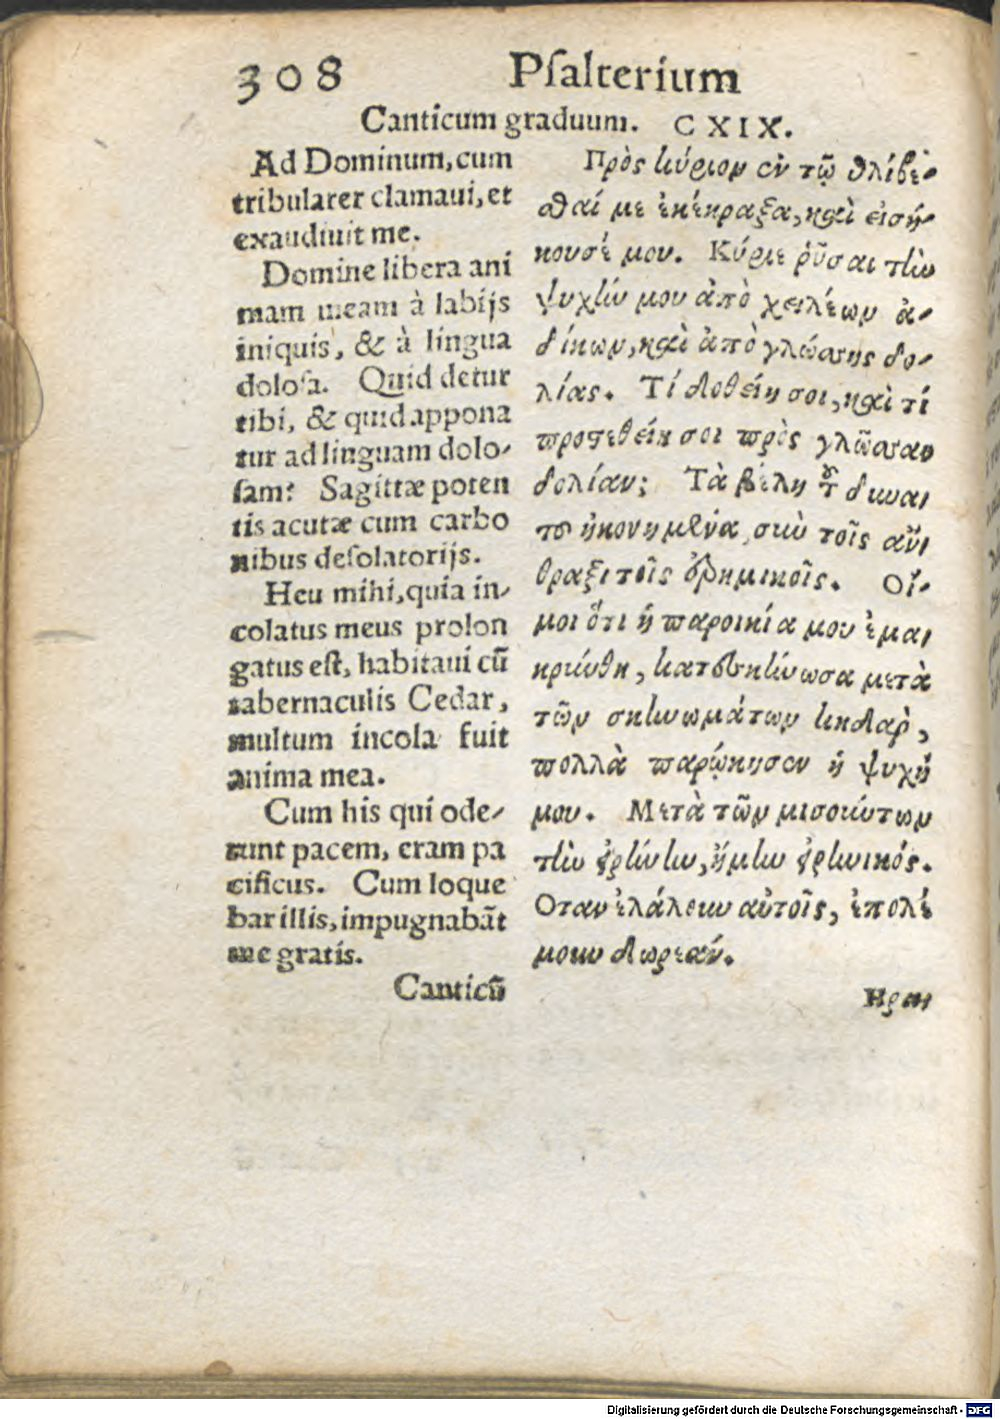 308 Psalterium
Canticum graduum. CXIX.
Ad Dominum, cum
tribularer clamaui, et
exaudiuit me.
Domine libera ani
mam meam à labijs
iniquis, & à lingua
dolosa. Quid detur
tibi, & quid appona
tur ad linguam dolo-
sam? Sagittæ poten
tis acutæ cum carbo
nibus desolatorijs.
Heu mihi, quia in-
colatus meus prolon
gatus est, habitaui cū
tabernaculis Cedar,
multum incola fuit
anima mea.
Cum his qui ode-
runt pacem, eram pa
cificus. Cum loque
bar illis, impugnabāt
me gratis.
Canticū
Πρὸς κύριον ἐν τῷ θλίβε-
σθαί με ἐκέκραξα, καὶ εἰσή-
κουσέ μου. Κύριε ῥῦσαι τὴν
ψυχήν μου ἀπὸ χειλέων ἀ-
δίκων, καὶ ἀπὸ γλώσσης δο-
λίας. Τί δοθείη σοι, καὶ τί
προστεθείη σοι πρὸς γλῶσσαν
δολίαν; Τὰ βέλη τοῦ δυναι
τοῦ ἠκονημένα, σὺν τοῖς ἄνι
θραξι τοῖς ἐρημικοῖς. Οἴ-
μοι ὅτι ἡ παροικία μου ἐμαι
κρύνθη, κατεσκήνωσα μετὰ
τῶν σκηνωμάτων κηδὰρ,
πολλὰ παρῴκησεν ἡ ψυχή
μου. Μετὰ τῶν μισούντων
τὴν εἰρήνην, ἤμην εἰρηνικός.
Οταν ἐλάλουν αὐτοῖς, ἐπολέ
μουν δωρεάν.
Ηραι
Digitalisierung gefördert durch die Deutsche Forschungsgemeinschaft - DFG